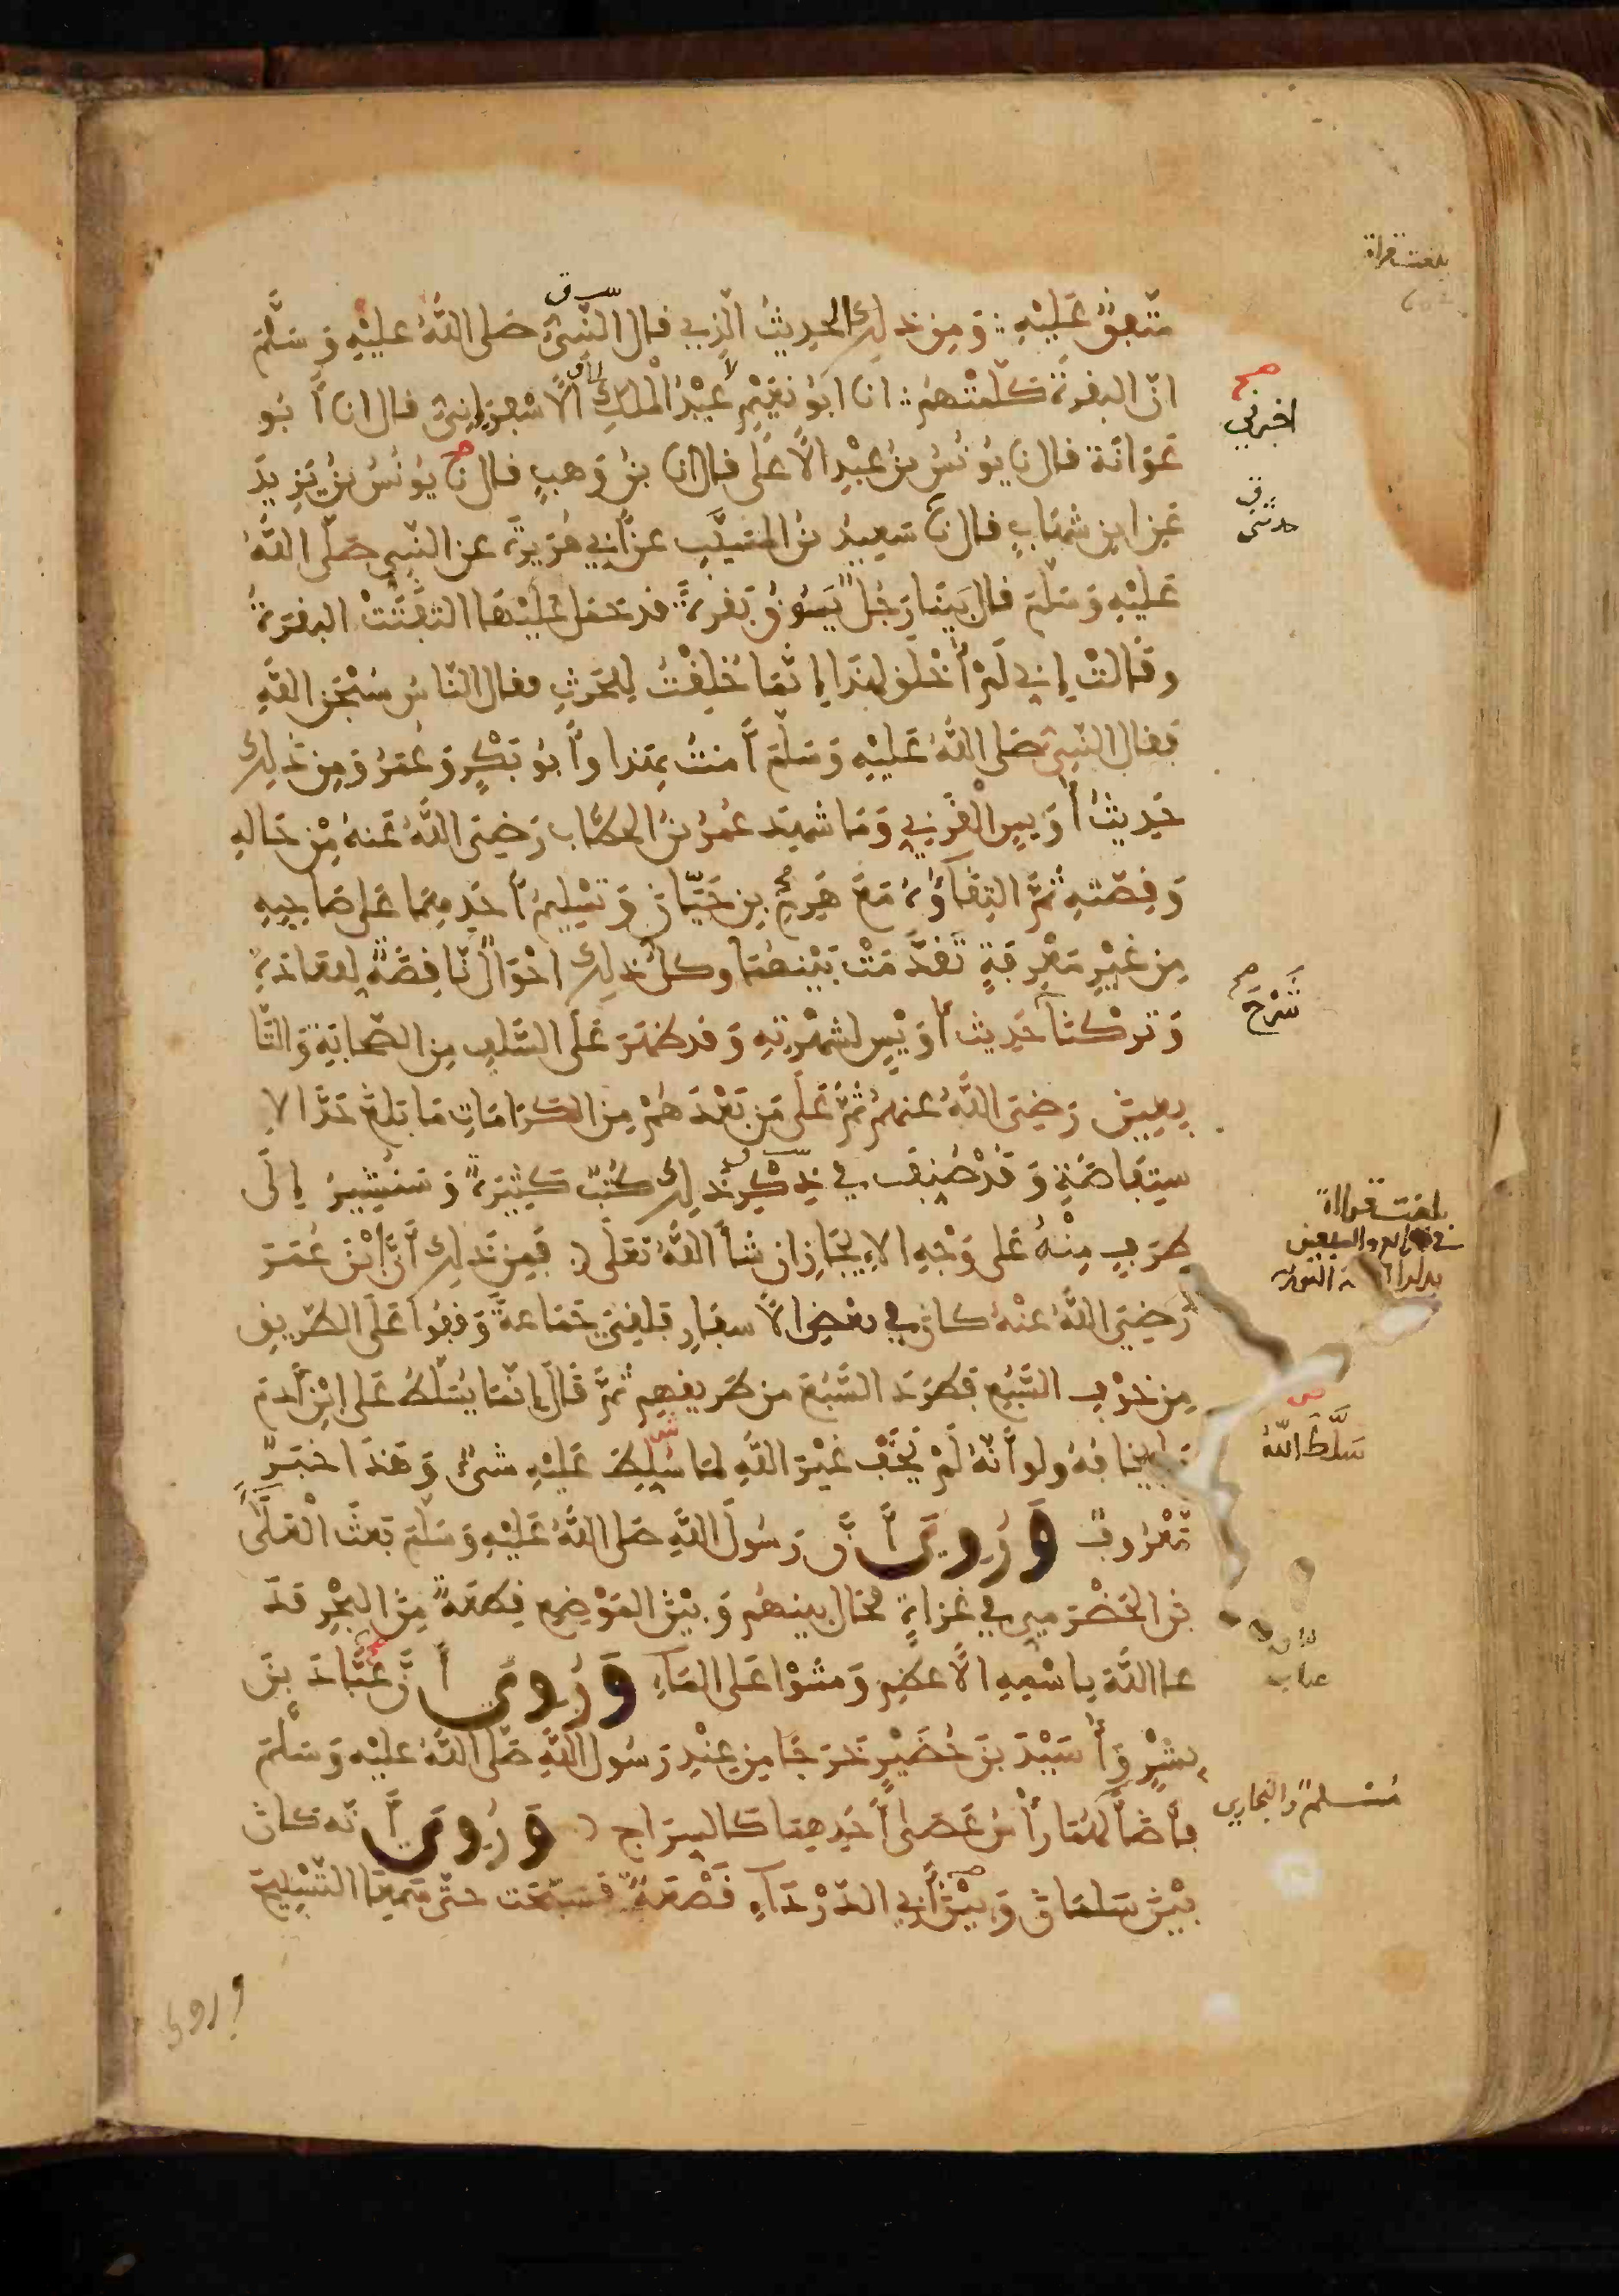 متفق عليه ∴ ومن ذلك الحديث الذي قال النبي صلى الله عليه وسلم
ان البقرة كلمتهم ∴ انا ابو نعيم عبد الملك الأسفرايني قال انا أبو
عوانة قال نا يونس بن عبد الأعلى قال انا بن وهب قال نا يونس بن يزيد
عن ابن شهاب قال نا سعيد بن المسيب عن أبي هريرة عن النبي صلى الله
عليه وسلم قال بينا رجل يسوق بقرة قد حمل عليها التفتت البقرة
وقالت إني لم أخلق لهذا إنما خلقت للحرث فقال الناس سبحن الله
فقال النبي صلى الله عليه وسلم أمنت بهذا وأبو بكر وعمر ومن ذلك
حديث أويس القرني وما شهد عمر بن الخطاب رضي الله عنه من حاله
وقصته ثم التقاؤه مع هرم بن حيان وتسليم أحدهما على صاحبه
من غير معرفة تقدمت بينهما وكل ذلك احوال ناقضة لعادة
وتركنا حديث أويس لشهرته وقد ظهر على السلف من الصحابة والتا
بعين رضي الله عنهم ثم على من بعدهم من الكرامات ما بلغ حد الا
ستفاضة وقد صنف في ذكر ذلك كتب كثيرة وسنشير إلى
طرف منه على وجه الايجاز ان شأ الله تعلى فمن ذلك أن ابن عمر
رضي الله عنه كان في بعض الأسفار فلقي جماعة وقفوا على الطريق
من خوف السبع فطرد السبع من طريقهم ثم قال إنما يسلط على ابن أدم
ما يخافه ولو أنه لم يخف غير الله لما سلط عليه شئ وهذا خبر
معروف وروي أن رسول الله صلى الله عليه وسلم بعث العلى
بن الحضرمي في غزاة فحال بينهم وبين الموضع قطعة من البحر فد
عا الله باسمه الأعظم ومشوا على الماء وروي أن عباد بن
بشير وأسيد بن حضير خرجا من عند رسول الله صلى الله عليه وسلم
فأضأ لهما رأس عصى أحدهما كالسراج وروي أنه كان
بين سلمان وبين أبي الدرداء قصعة فسبحت حتى سمعا التسبيح
وروى
بلغت قراة
اخبرني
حدثني
شرح
بلغت قراءة
سلط الله
عتاب
مسلم والبخاري